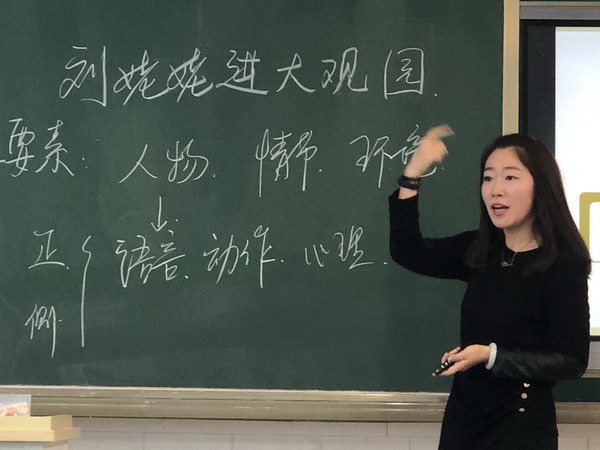 刘姥姥进大观园.
要素: 人物. 情节. 环境.
↓
正. { 语言. 动作. 心理.
侧.